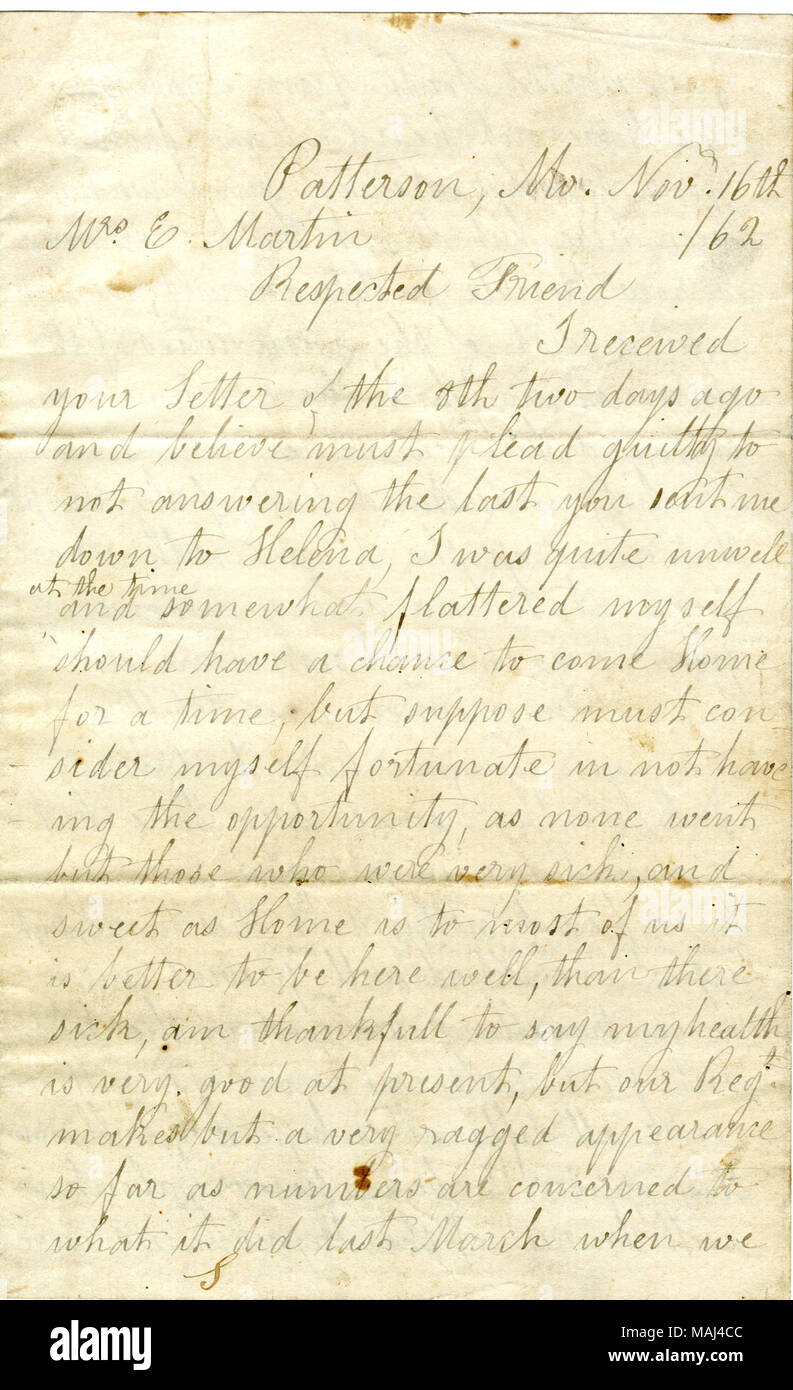 Patterson, Mo. Novr. 16th
Mrs. E. Martin /62
Respected Friend
I received
your Letter of the 8th two days ago
and believe must plead guilty to
not answering the last you sent me
down to Helena, I was quite unwell
at the time
and somewhat flattered myself
should have a chance to come Home
for a time, but suppose must con-
sider myself fortunate in not hav-
ing the opportunity, as none went
but those who were very sick, and
sweet as Home is to most of us it
is better to be here well, than there
sick, am thankfull to say my health
is very good at present, but our Regt.
makes but a very ragged appearance
so far as numbers are concerned to
what it did last March when we
alamy
Image ID: MAJ4CC
www.alamy.com